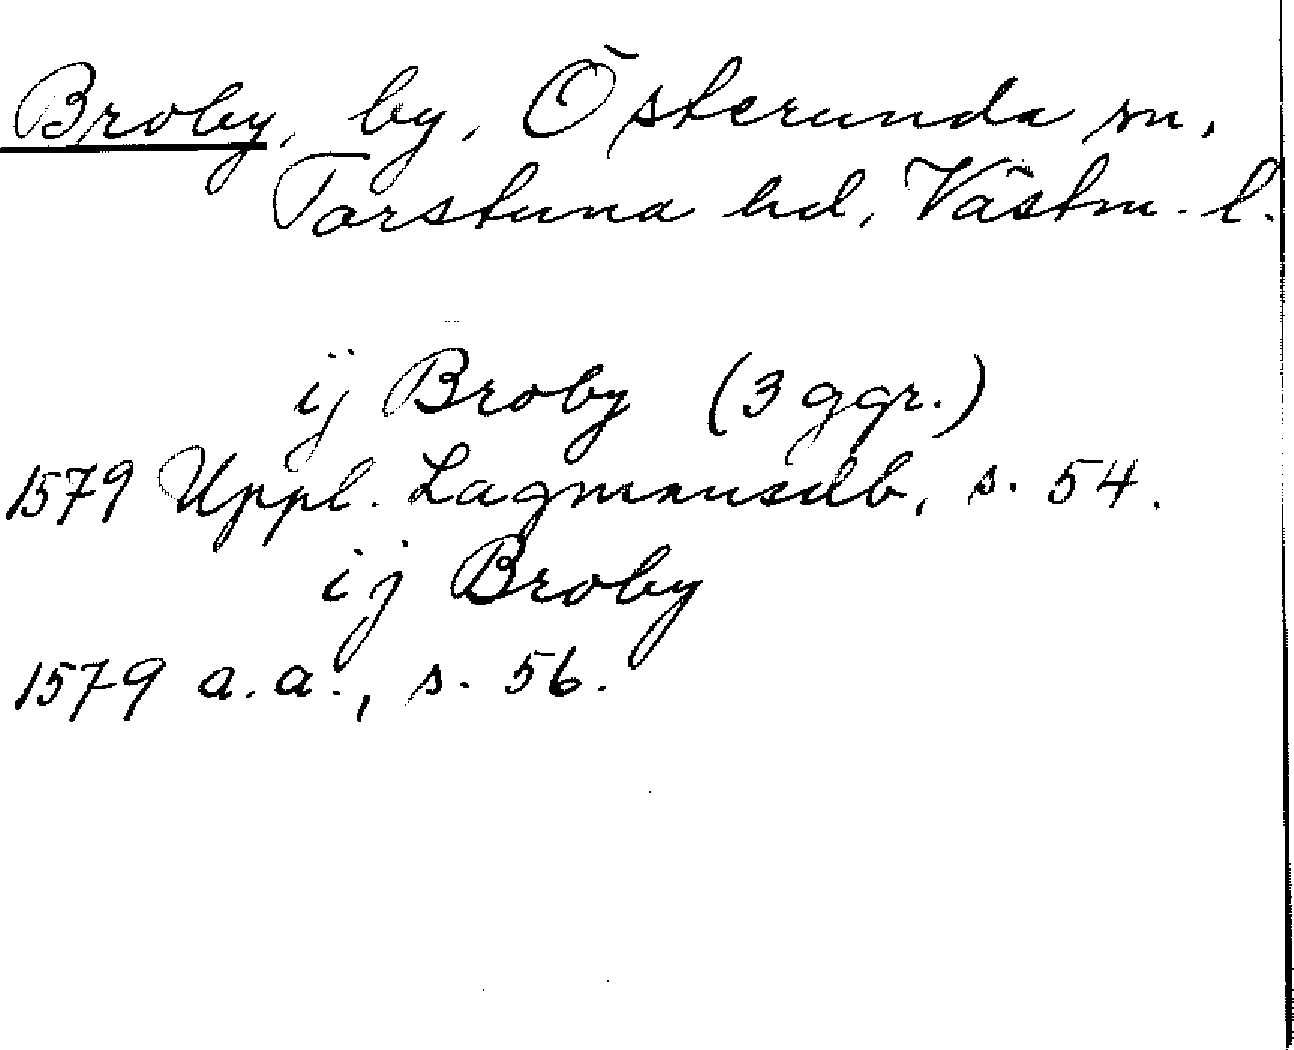 Broby, by, Österunda sn,
Torstuna hd, Västm. l.
ij Broby (3 ggr.)
1579 Uppl. Lagmansdb, s. 54.
ij Broby
1579 a.a., s. 56.